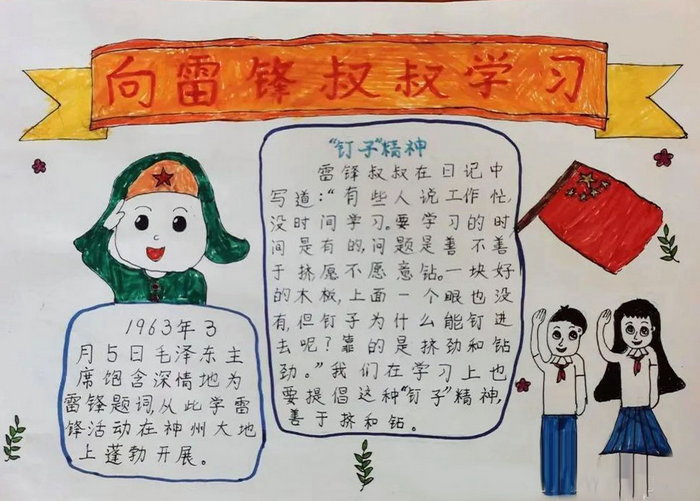 向雷锋叔叔学习
“钉子”精神
雷锋叔叔在日记中
写道：“有些人说工作忙，
没时间学习。要学习的时
间是有的，问题是善不善
于挤愿不愿意钻。一块好
的木板，上面一个眼也没
有，但钉子为什么能钉进
去呢？靠的是挤劲和钻
劲。”我们在学习上也
要提倡这种“钉子”精神，
善于挤和钻。
1963年3
月5日毛泽东主
席饱含深情地为
雷锋题词，从此学雷
锋活动在神州大地
上蓬勃开展。